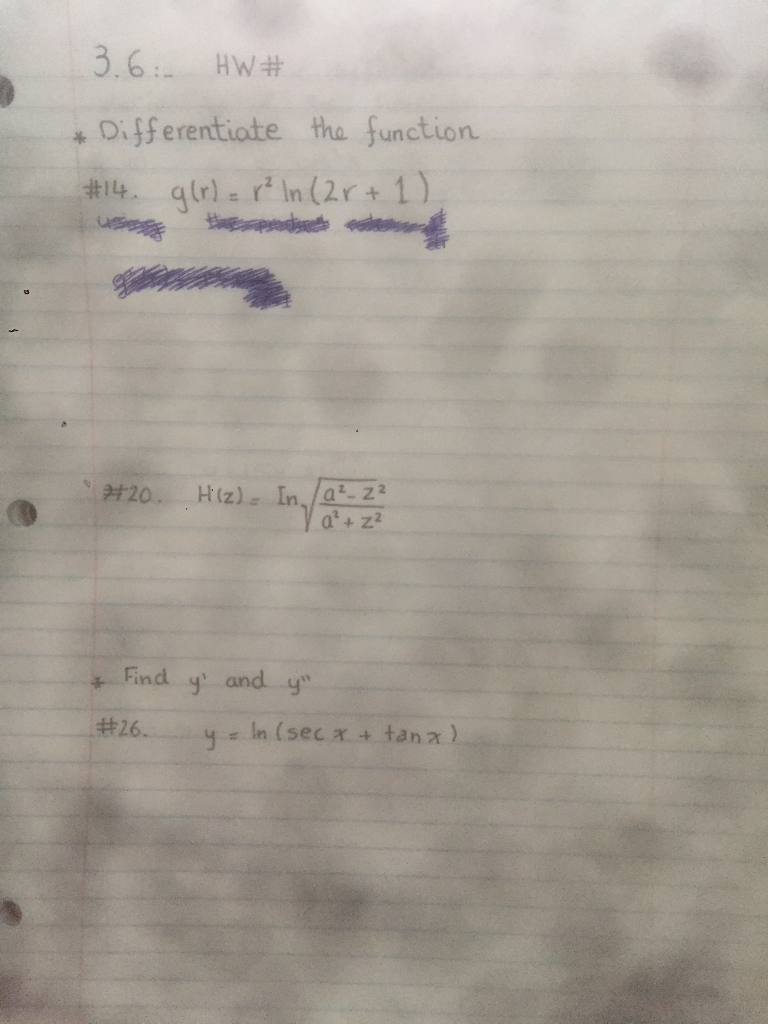 3.6:- HW#
* Differentiate the function
#14. g(r) = r² ln(2r + 1)
#20. H(z) = In√((a² - z²)/(a² + z²))
* Find y' and y"
#26. y = ln(sec x + tan x)